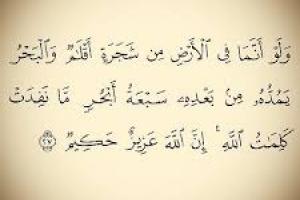 وَلَوْ أَنَّمَا فِى ٱلْأَرْضِ مِن شَجَرَةٍ أَقْلَـٰمٌ وَٱلْبَحْرُ
يَمُدُّهُۥ مِنۢ بَعْدِهِۦ سَبْعَةُ أَبْحُرٍ مَّا نَفِدَتْ
كَلِمَـٰتُ ٱللَّهِ ۗ إِنَّ ٱللَّهَ عَزِيزٌ حَكِيمٌ ٢٧